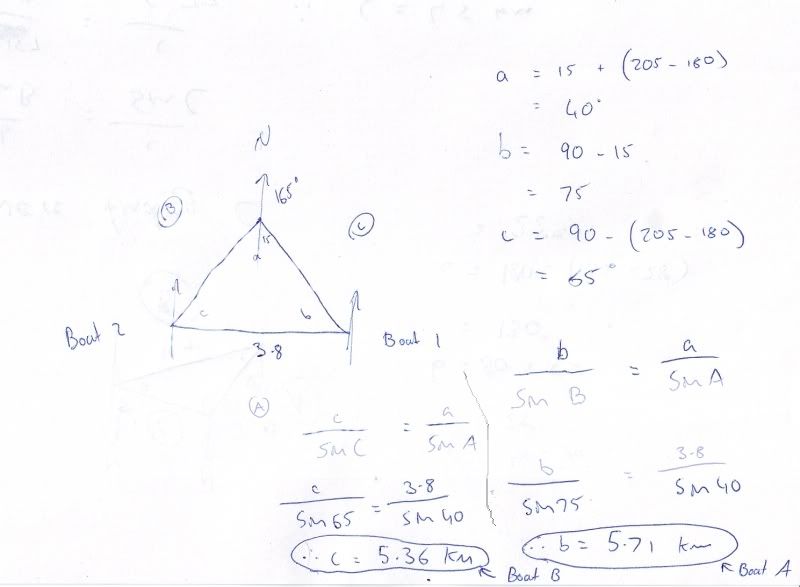 a = 15 + (205 - 180)
= 40°
b = 90 - 15
= 75
c = 90 - (205 - 180)
= 65°
N
165°
B
C
15
a
c
b
Boat 2
3.8
Boat 1
A
c / Sin C = a / Sin A
c / Sin 65 = 3.8 / Sin 40
∴ c = 5.36 km
Boat B
b / Sin B = a / Sin A
b / Sin 75 = 3.8 / Sin 40
∴ b = 5.71 km
Boat A